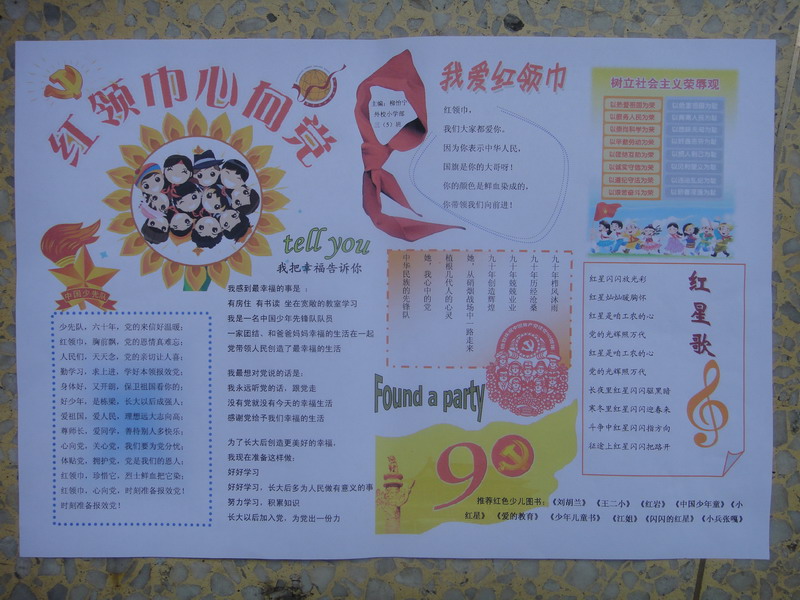 红领巾心向党
主编：
外校小学部
三（5）班
我爱红领巾
红领巾，
我们大家都爱你，
因为你表示中华人民，
国旗是你的大哥呀！
你的颜色是鲜血染成的，
你带领我们向前进！
树立社会主义荣辱观
以热爱祖国为荣
以服务人民为荣
以崇尚科学为荣
以辛勤劳动为荣
以团结互助为荣
以诚实守信为荣
以遵纪守法为荣
以艰苦奋斗为荣
中国少年先队
tell you
我把幸福告诉你
我感到最幸福的事是：
有房住 有书读 坐在宽敞的教室学习
我是一名中国少年先锋队队员
一家团结，和爸爸妈妈幸福的生活在一起
党带领人民创造了最幸福生活
我最想对党说的话是：
我永远听党的话，跟党走
没有党就没有今天的幸福生活
感谢党给予我们幸福的生活
为了长大后创造更美好的幸福，
我现在准备这样做：
好好学习
好好学习，长大后多为人民做有意义的事
努力学习，积累知识
长大以后加入党，为党出一份力
少先队，六十年，党的来信好温暖；
红领巾，胸前飘，党的恩情真难忘；
人民们，天天念，党的亲切让人喜；
勤学习，求上进，学好本领报党恩；
身体好，又开朗，保卫祖国看你的；
好少年，是栋梁，长大以后成强人；
爱祖国，爱人民，理想远大志向高；
尊师长，爱同学，善待别人多快乐；
心向党，关心党，我们要为党分忧；
体贴党，拥护党，党是我们的恩人；
红领巾，珍惜它，烈士鲜血把它染；
红领巾，心向党，时刻准备报党恩！
时刻准备报党恩！
九十年栉风沐雨
九十年历经沧桑
九十年兢兢业业
九十年创造辉煌
她，从硝烟战场中一路走来
植根几代人的心灵
她，我心中的党
中华民族的先锋队
Found a party
90
红星歌
红星闪闪放光彩
红星灿灿暖胸怀
红星是咱工农的心
党的光辉照万代
红星是咱工农的心
党的光辉照万代
长夜里红星闪闪驱黑暗
寒冬里红星闪闪迎春来
斗争中红星闪闪指方向
征途上红星闪闪把路开
推荐红色少儿图书：《刘胡兰》 《王二小》 《红岩》 《中国少年童》《小
红星》 《爱的教育》 《少年儿童书》 《江姐》《闪闪的红星》《小兵张嘎》